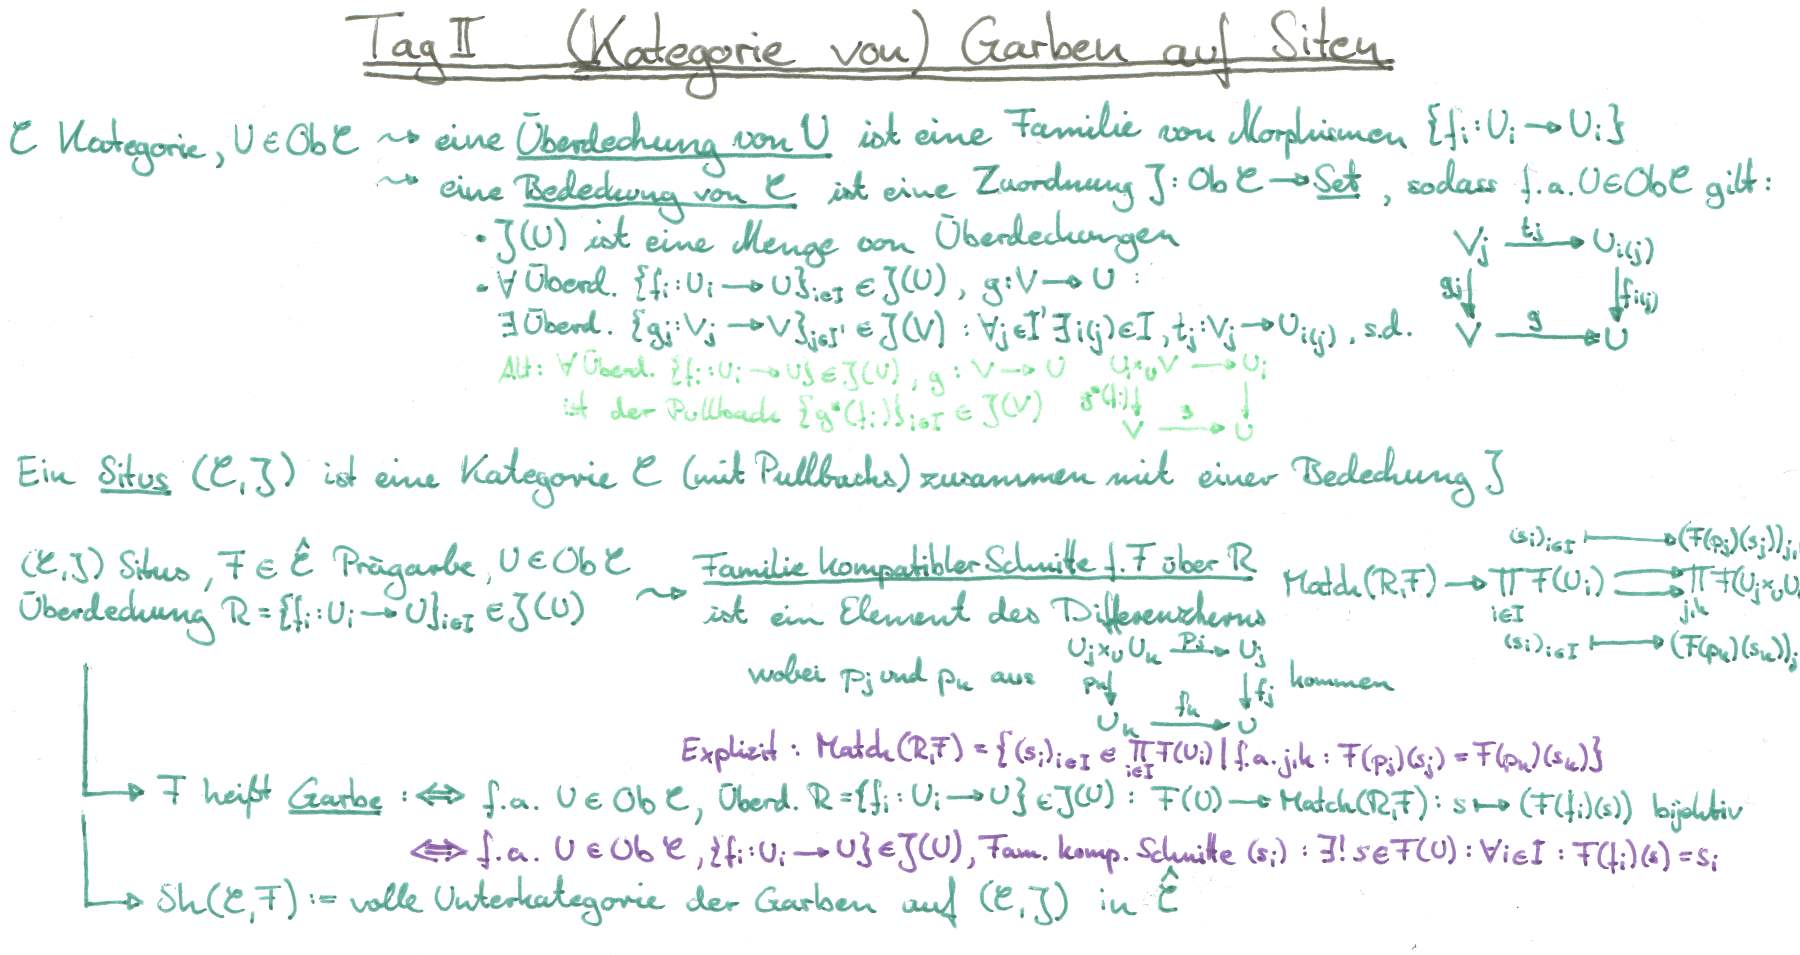 Tag II (Kategorie von) Garben auf Siten
C Kategorie, U ∈ Ob C ⇝ eine Überdeckung von U ist eine Familie von Morphismen {f_i : U_i → U_i}
⇝ eine Bedeckung von C ist eine Zuordnung J : Ob C → Set, sodass f.a. U ∈ Ob C gilt:
• J(U) ist eine Menge von Überdeckungen
• ∀ Überd. {f_i : U_i → U}_{i∈I} ∈ J(U), g : V → U :
∃ Überd. {g_j : V_j → V}_{j∈I'} ∈ J(V) : ∀j∈I' ∃ i(j)∈I, t_j : V_j → U_{i(j)}, s.d.
V_j t_j → U_{i(j)}
g_j ↓ ↓ f_{i(j)}
V g → U
Alt: ∀ Überd. {f_i : U_i → U} ∈ J(U), g : V → U
ist der Pullback {g*(f_i)}_{i∈I} ∈ J(V)
U_i ×_U V → U_i
g*(f_i) ↓ ↓
V g → U
Ein Situs (C, J) ist eine Kategorie C (mit Pullbacks) zusammen mit einer Bedeckung J
(C, J) Situs, F ∈ Ĉ Prägarbe, U ∈ Ob C
Überdeckung R = {f_i : U_i → U}_{i∈I} ∈ J(U)
⇝ Familie kompatibler Schnitte f. F über R
ist ein Element des Differenzkerns
(s_i)_{i∈I} ↦ (F(p_j)(s_j))_{j,k
Match(R,F) → ∏_{i∈I} F(U_i) ⇉ ∏_{j,k} F(U_j ×_U U_k
(s_i)_{i∈I} ↦ (F(p_k)(s_k))_j
wobei p_j und p_k aus
U_j ×_U U_k p_j → U_j
p_k ↓ ↓ f_j
U_k f_k → U
kommen
Explizit : Match(R,F) = {(s_i)_{i∈I} ∈ ∏_{i∈I} F(U_i) | f.a. j,k : F(p_j)(s_j) = F(p_k)(s_k)}
→ F heißt Garbe :⇔ f.a. U ∈ Ob C, Überd. R = {f_i : U_i → U} ∈ J(U) : F(U) → Match(R,F) : s ↦ (F(f_i)(s)) bijektiv
⇔ f.a. U ∈ Ob C, {f_i : U_i → U} ∈ J(U), Fam. komp. Schnitte (s_i) : ∃! s ∈ F(U) : ∀i∈I : F(f_i)(s) = s_i
→ Sh(C,F) := volle Unterkategorie der Garben auf (C, J) in Ĉ